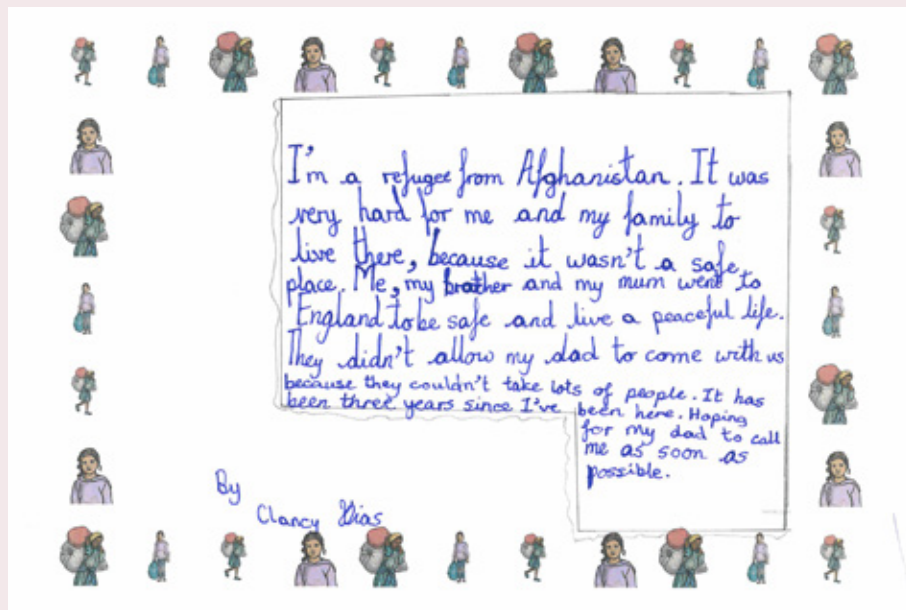 I'm a refugee from Afghanistan. It was
very hard for me and my family to
live there, because it wasn't a safe
place. Me, my brother and my mum went to
England to be safe and live a peaceful life.
They didn't allow my dad to come with us
because they couldn't take lots of people. It has
been three years since I've been here. Hoping
for my dad to call
me as soon as
possible.
By
Clancy Dias